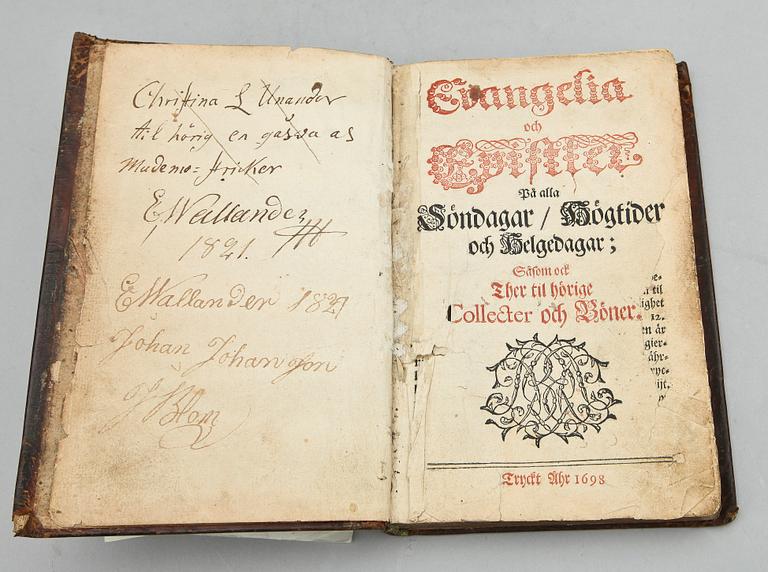 Christina L Unander
til hörig en gåsva as
Mademo= fricker
E Wallander
1821.
E Wallander 1821
Johan Johansson
Blom
Evangelia
och
Epistler
På alla
Söndagar / Högtider
och Helgedagar;
Såsom ock
Ther til hörige
Collecter och Böner.
Tryckt Åhr 1698
e-
til
ighet
12.
en är
gier-
ähr-
ijt.